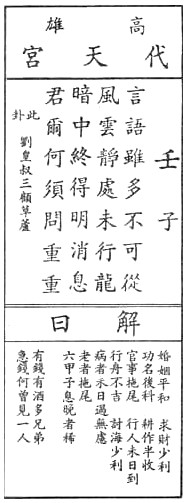 高雄
代天宮
壬子
言語雖多不可從
風雲靜處未行龍
暗中終得明消息
君爾何須問重重
此卦 劉皇叔三顧草蘆
解曰
婚姻平和 求財少利
功名後科 耕作半收
官事拖尾 行人未日到
行舟不吉 討海少利
病者禾日過無慮
老者拖尾
六甲子息晚者稀
有錢有酒多兄弟
急錢何曾見一人